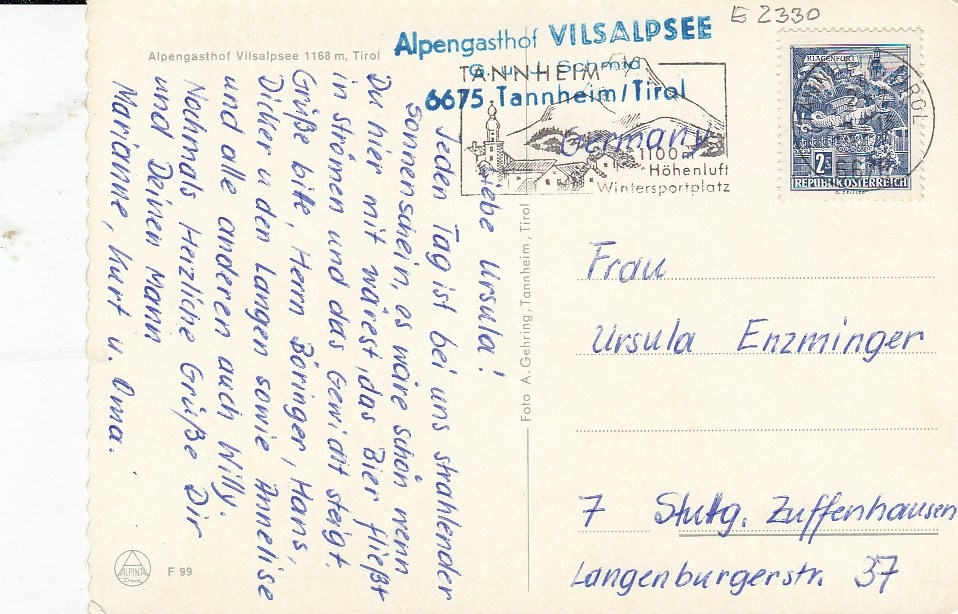 E 2330
Alpengasthof Vilsalpsee 1168 m, Tirol
Alpengasthof VILSALPSEE
G. u. L. Schmid
6675 Tannheim/Tirol
TANNHEIM
1100m
Höhenluft
Wintersportplatz
Germany
KLAGENFURT
2S
REPUBLIK ÖSTERREICH
TIROL
Liebe Ursula!
Jeden Tag ist bei uns strahlender
Sonnenschein, es wäre schön wenn
Du hier mit wärest, das Bier fließt
in strömen und das Gewicht steigt.
Grüße bitte, Herrn Böringer, Hans,
Dicker u den Langen sowie Annelise
und alle anderen auch Willy.
Nochmals Herzliche Grüße Dir
und Deinen Mann
Marianne, Kurt u. Oma.
Foto A. Gehring, Tannheim, Tirol
Frau
Ursula Enzminger
7 Stuttg. Zuffenhausen
Langenburgerstr. 37
ALPINA
F 99